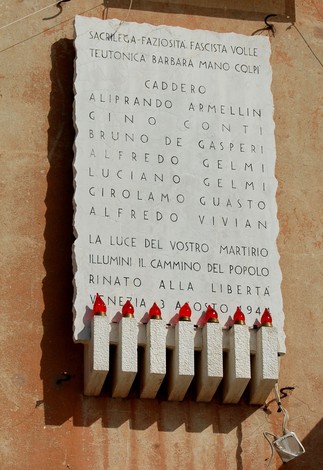 SACRILEGA-FAZIOSITÀ FASCISTA VOLLE
TEUTONICA BARBARA MANO COLPÌ
CADDERO
ALIPRANDO ARMELLIN
GINO CONTI
BRUNO DE GASPERI
ALFREDO GELMI
LUCIANO GELMI
GIROLAMO GUASTO
ALFREDO VIVIAN
LA LUCE DEL VOSTRO MARTIRIO
ILLUMINI IL CAMMINO DEL POPOLO
RINATO ALLA LIBERTÀ
VENEZIA 3 AGOSTO